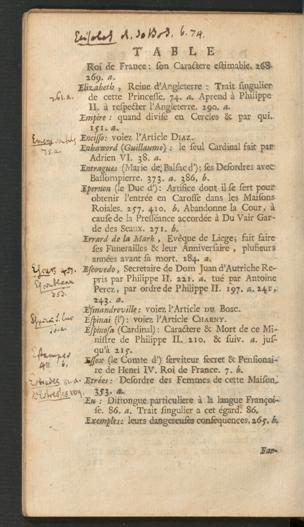 TABLE
Roi de France: son Caractere estimable. 268.
269. a.
Elizabeth, Reine d'Angleterre: Trait singulier
de cette Princesse. 74. a. Aprend à Philippe
II. à respećter l'Angleterre. 290. a.
Empire: quand divisé en Cercles & par qui.
151. a.
Enciso: voiez l'Article DIAZ.
Enkaword (Guillaume): le seul Cardinal fait par
Adrien VI. 38. a.
Entragues (Marie de Balsac d'): ses Desordres avec
Bassompierre. 373. a. 386. b.
Epernon (le Duc d'): Artifice dont il se sert pour
obtenir l'entrée en Carosse dans les Maisons
Roiales. 257. 410. b. Abandonne la Cour, à
cause de la Presséance accordée à Du Vair Gar-
de des Seaux. 271. b.
Errard de la Mark, Evêque de Liege; fait faire
ses Funerailles & leur Anniversaire, plusieurs
années avant sa mort. 184. a.
Escovedo, Secretaire de Dom Juan d'Autriche Re-
pris par Philippe II. 221. a. tué par Antoine
Perez, par ordre de Philippe II. 197. a. 241.
243. a.
Esmandreville: voiez l'Article du BOSC.
Espinai (l'): voiez l'Article CHARNY.
Espinosa (Cardinal): Caractere & Mort de ce Mi-
nistre de Philippe II. 210. & suiv. a. jus-
qu'à 215.
Essex (le Comte d') serviteur secret & Pensionai-
re de Henri IV. Roi de France. 7. b.
Etrées: Desordre des Femmes de cette Maison.
353. a.
Eu: Diftongue particuliere à la langue Françoi-
se. 86. a. Trait singulier a cet égard. 86.
Exemples: leurs dangereuses consequences. 265. b.